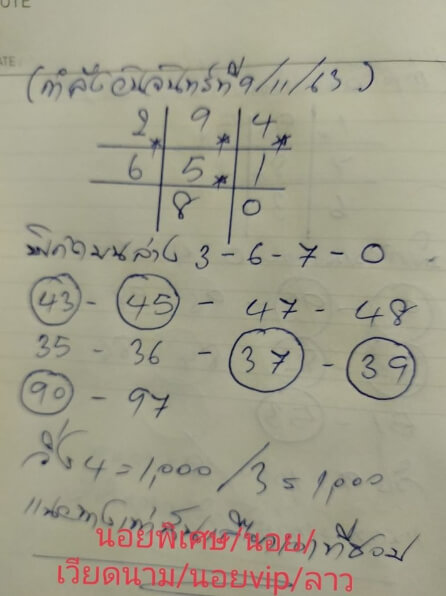 UTE
ATE
(กำลังวันจันทร์ที่ 9/11/63)
2 9 4
6 5 1
8 0
พิกัดบนล่าง 3-6-7-0
43 - 45 - 47 - 48
35 - 36 - 37 - 39
90 - 97
วิ่ง 4=1,000/3=1,000
แนวทางเท่านั้น
นอยพิเศษ/นอย/
เวียดนาม/นอยvip/ลาว